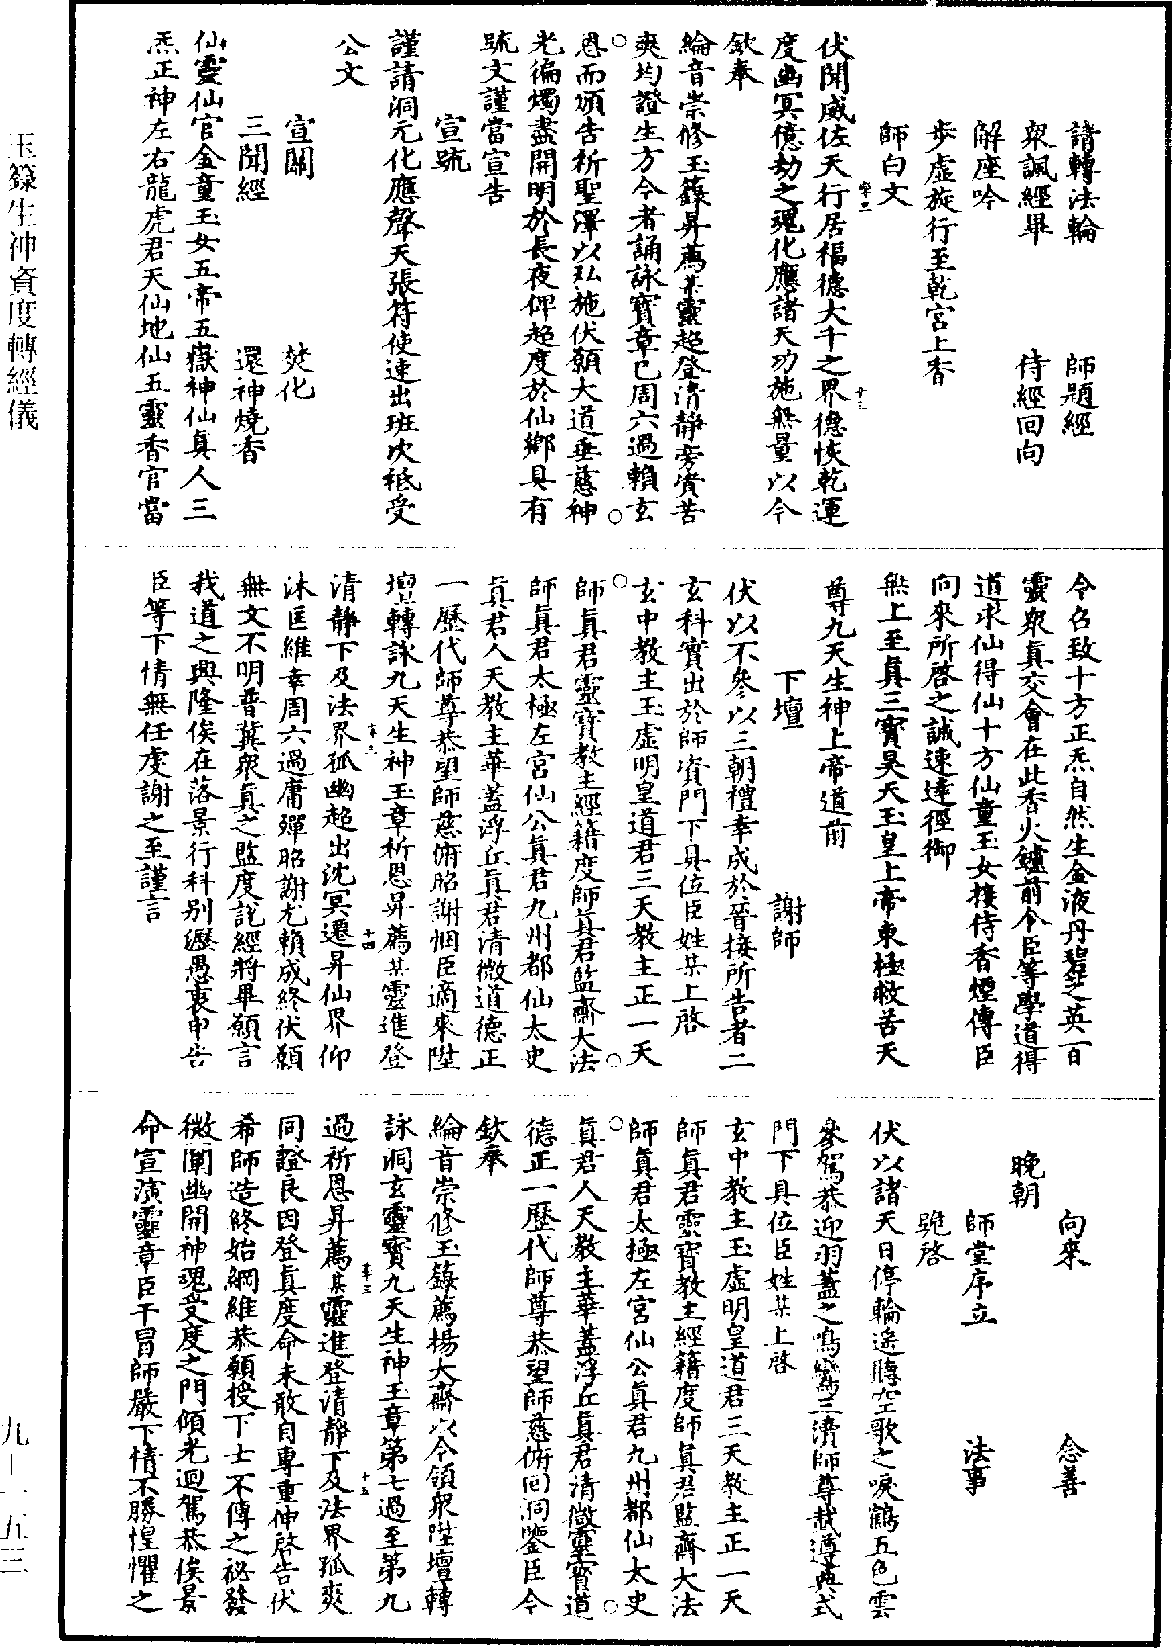 請轉法輪　師題經
衆諷經畢　侍經回向
解座吟
步虛旋行至乾宮上香
師白文
伏聞威佐天行居福德大千之界德恢乾運
度幽冥億劫之魂化應諸天功施無量以今
欽奉
綸音崇修玉籙昇薦某靈超登清靜旁資苦
爽均證生方今者誦詠寶章已周六過賴玄
恩而頒告祈聖澤以弘施伏願大道垂慈神
光徧燭盡開明於長夜俾超度於仙鄉具有
疏文謹當宣告
宣疏
謹請洞元化應聲天張符使速出班次祗受
公文
宣關　焚化
三聞經　還神燒香
仙靈仙官金童玉女五帝五嶽神仙真人三
炁正神左右龍虎君天仙地仙五靈香官當
令召致十方正炁自然生金液丹碧芝英百
靈衆真交會在此香火鑪前令臣等學道得
道求仙得仙十方仙童玉女接侍香煙傳臣
向來所啓之誠速達徑御
無上至真三寶昊天玉皇上帝東極救苦天
尊九天生神上帝道前
下壇　謝師
伏以不參以三朝禮幸成於晉接所告者二
玄科實出於師資門下具位臣姓某上啓
玄中教主玉虛明皇道君三天教主正一天
師真君靈寶教主經籍度師真君監齋大法
師真君太極左宮仙公真君九州都仙太史
真君人天教主華蓋浮丘真君清微道德正
一歷代師尊恭望師慈俯昭謝悃臣適來陞
壇轉詠九天生神玉章祈恩昇薦某靈進登
清靜下及法界孤幽超出沈冥還昇仙界仰
沐匡維幸周六過庸殫昭謝尤賴成終伏願
無文不明普冀衆真之監度說經將畢願言
我道之興隆俟在落景行科别瀝愚衷申告
臣等下情無任虔謝之至謹言
向來　念善
晚朝
師堂序立　法事
跪啓
伏以諸天日停輪遙聽空歌之唳鶴五色雲
參駕恭迎羽蓋之鳴鸞三濟師尊載遵典式
門下具位臣姓某上啓
玄中教主玉虛明皇道君三天教主正一天
師真君靈寶教主經籍度師真君監齋大法
師真君太極左宮仙公真君九州都仙太史
真君人天教主華蓋浮丘真君清微靈寶道
德正一歷代師尊恭望師慈俯回洞鑒臣今
欽奉
綸音崇修玉籙薦揚大齋以今領衆陞壇轉
詠洞玄靈寶九天生神玉章第七過至第九
過祈恩昇薦某靈進登清靜下及法界孤爽
同證良因登真度命未敢自專重伸啓告伏
希師造終始綱維恭願授下士不傳之祕發
微闡幽開神魂受度之門傾光迴駕恭俟景
命宣演靈章臣干冒師嚴下情不勝惶懼之
玉籙生神資度轉經儀
九－一五三